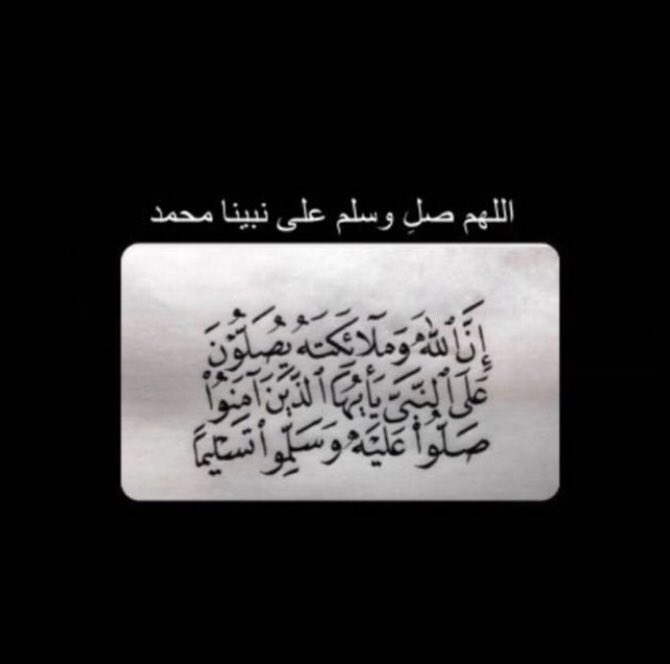 اللهم صلِ وسلم على نبينا محمد
إِنَّ ٱللَّهَ وَمَلَائِكَتَهُ يُصَلُّونَ
عَلَى ٱلنَّبِيِّ يَٰأَيُّهَا ٱلَّذِينَ آمَنُوا۟
صَلُّوا۟ عَلَيْهِ وَسَلِّمُوا۟ تَسْلِيمًا